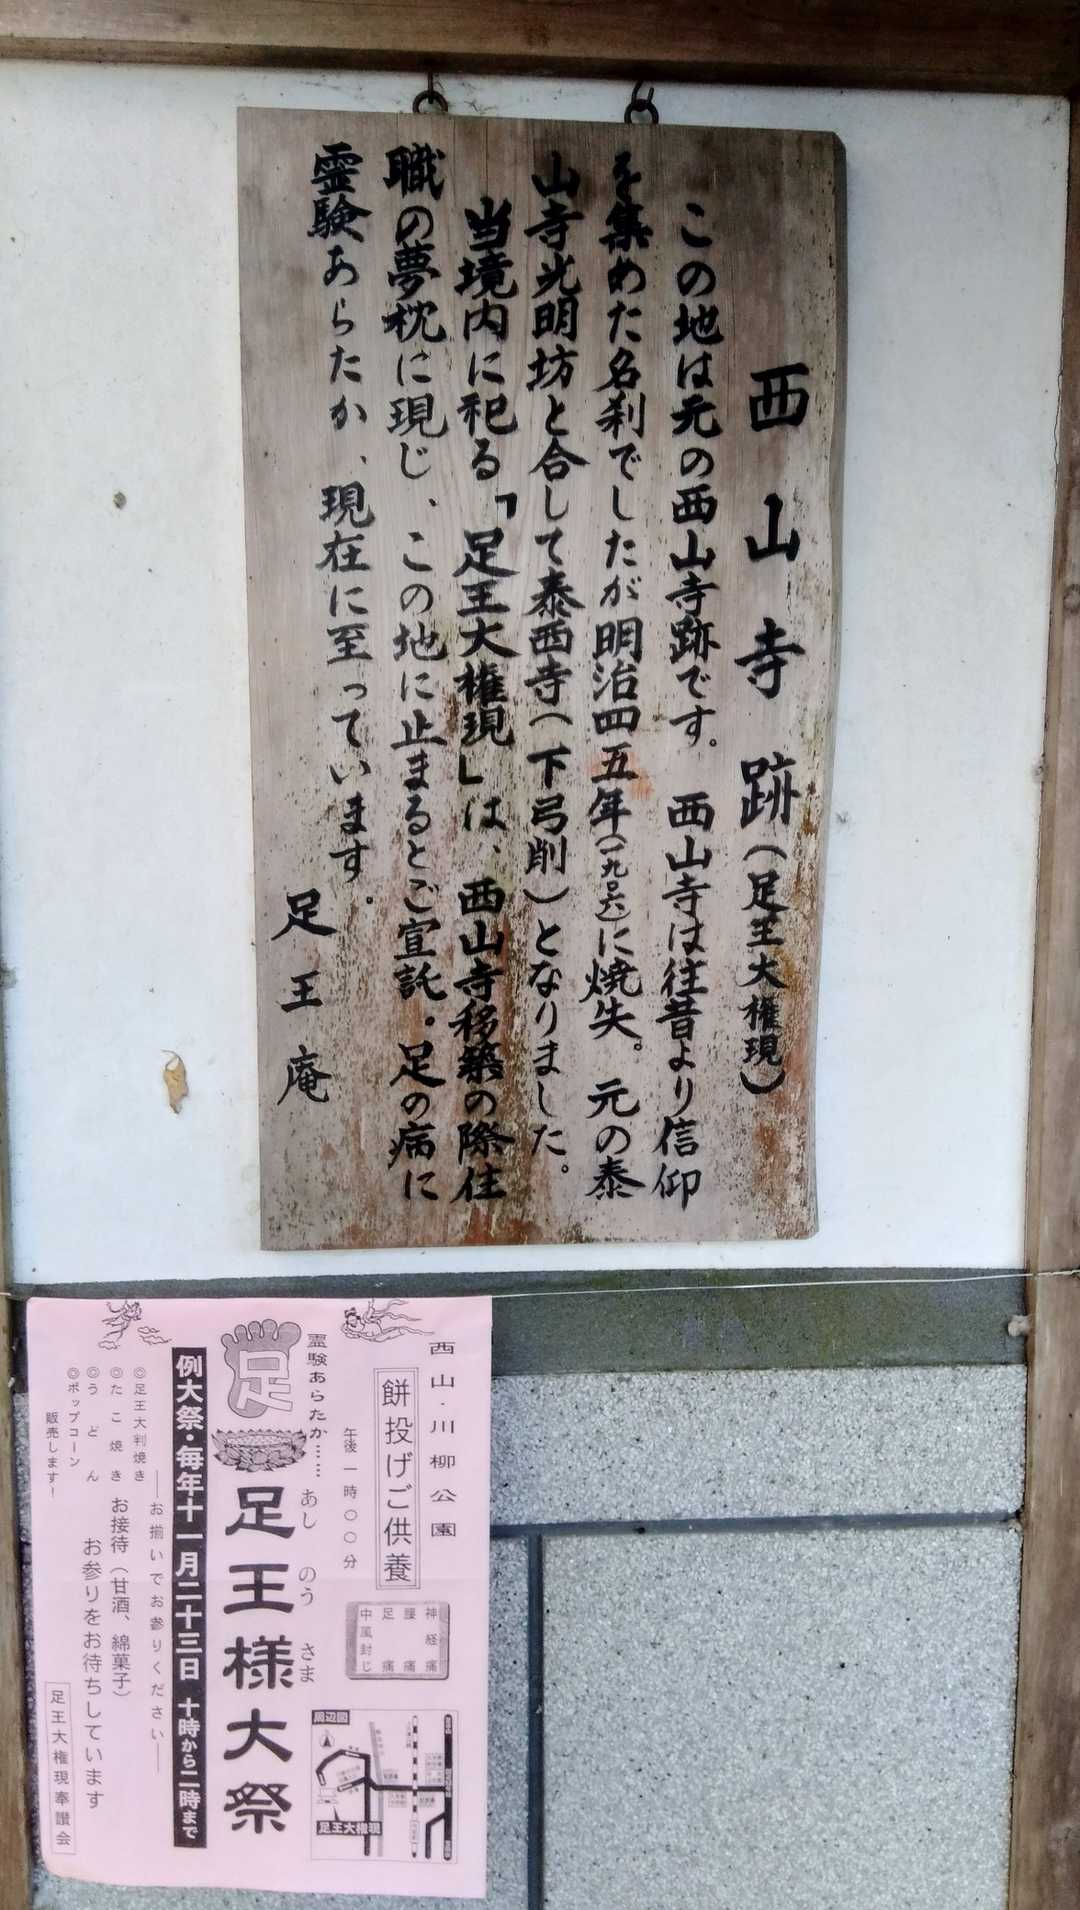 西山寺跡(足王大権現)
この地は元の西山寺跡です。西山寺は往昔より信仰
を集めた名刹でしたが明治四五年(一九〇六)に焼失。元の泰
山寺光明坊と合して泰西寺(下弓削)となりました。
当境内に祀る「足王大権現」は、西山寺移築の際住
職の夢枕に現じ、この地に止まるとご宣託。足の病に
霊験あらたか、現在に至っています。
足王庵
西山・川柳公園
餅投げご供養
午後一時〇〇分
神経痛
腰痛
足痛
中風封じ
霊験あらたか……
足
あしのうさま
足王様大祭
例大祭・毎年十一月二十三日 十時から二時まで
――お揃いでお参りください――
◎足王大判焼き
◎たこ焼き
◎うどん
◎ポップコーン
販売します!
お接待(甘酒、綿菓子)
お参りをお待ちしています
足王大権現奉讃会
周辺図
足王大権現